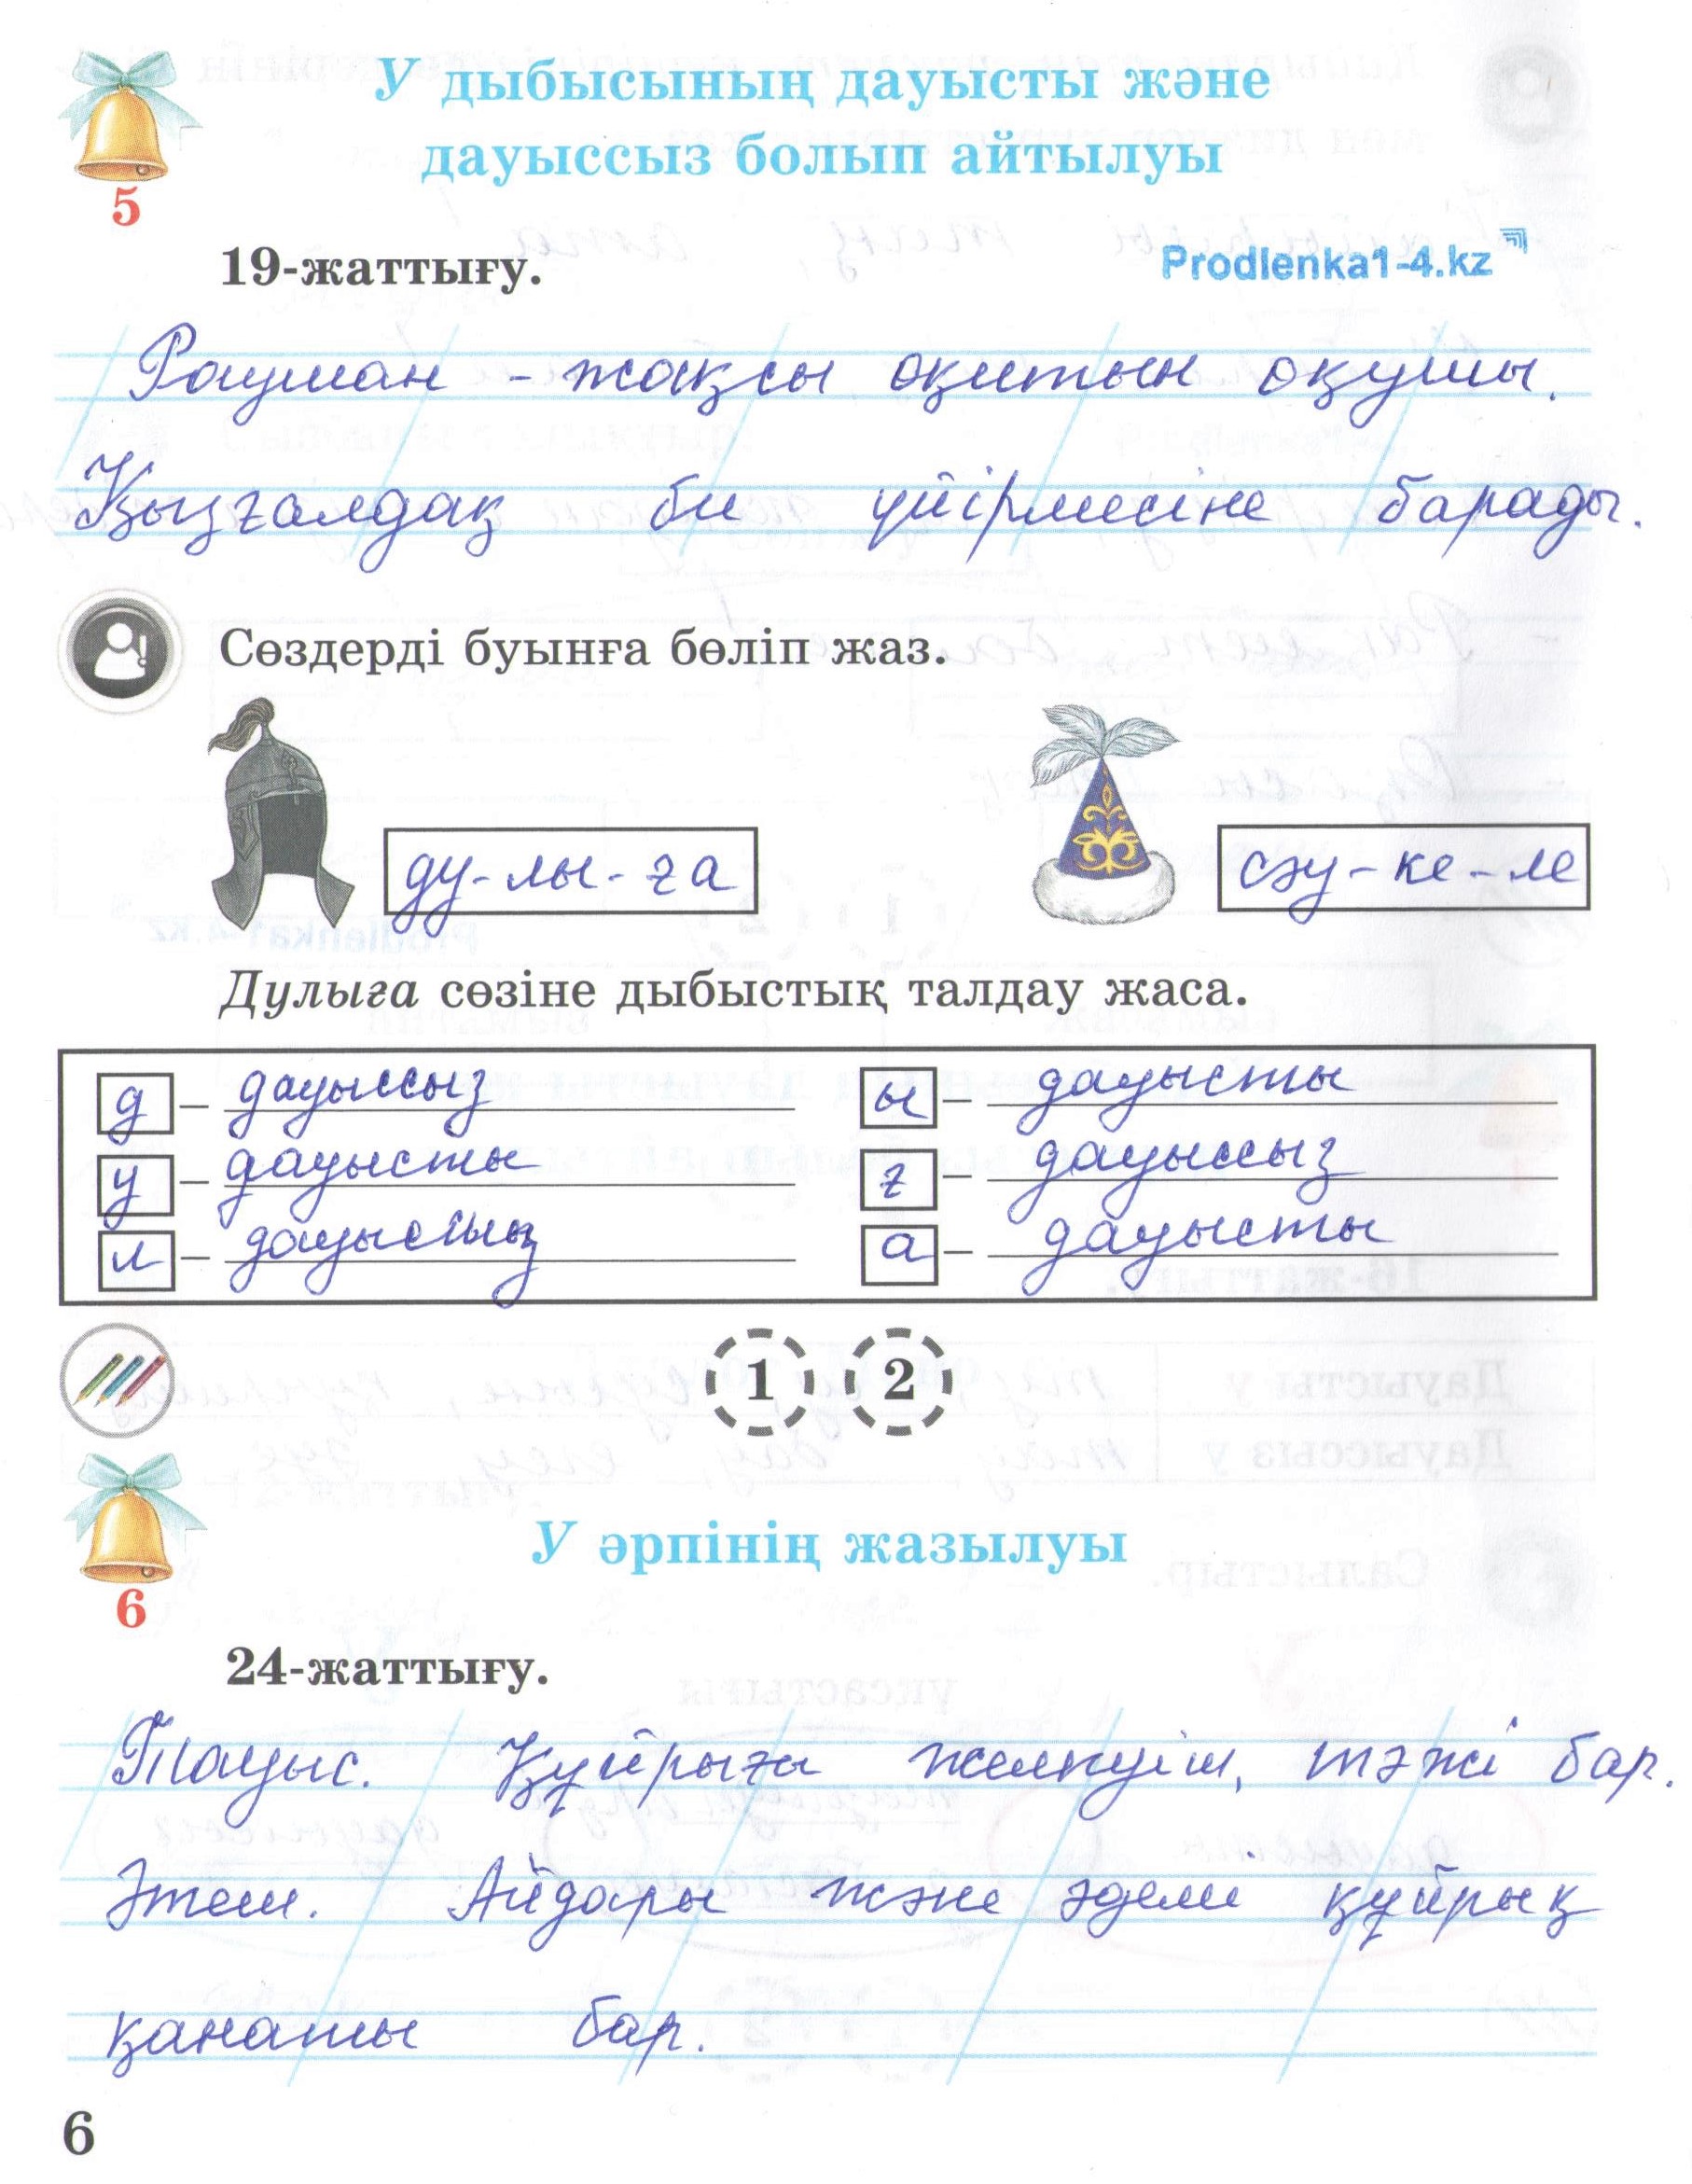 У дыбысының дауысты және
дауыссыз болып айтылуы
5
19-жаттығу.
Prodlenka1-4.kz
Раушан - жақсы оқитын оқушы.
Қызғалдақ би үйірмесіне барады.
Сөздерді буынға бөліп жаз.
ду-лы-ға
сәу-ке-ле
Дулыға сөзіне дыбыстық талдау жаса.
д – дауыссыз
ы – дауысты
у – дауысты
ғ – дауыссыз
л – дауыссыз
а – дауысты
1 2
У әрпінің жазылуы
6
24-жаттығу.
Тауыс. Құйрығы желпуіш, тәжі бар.
Әтеш. Айдары және әдемі құйрық
қанаты бар.
6